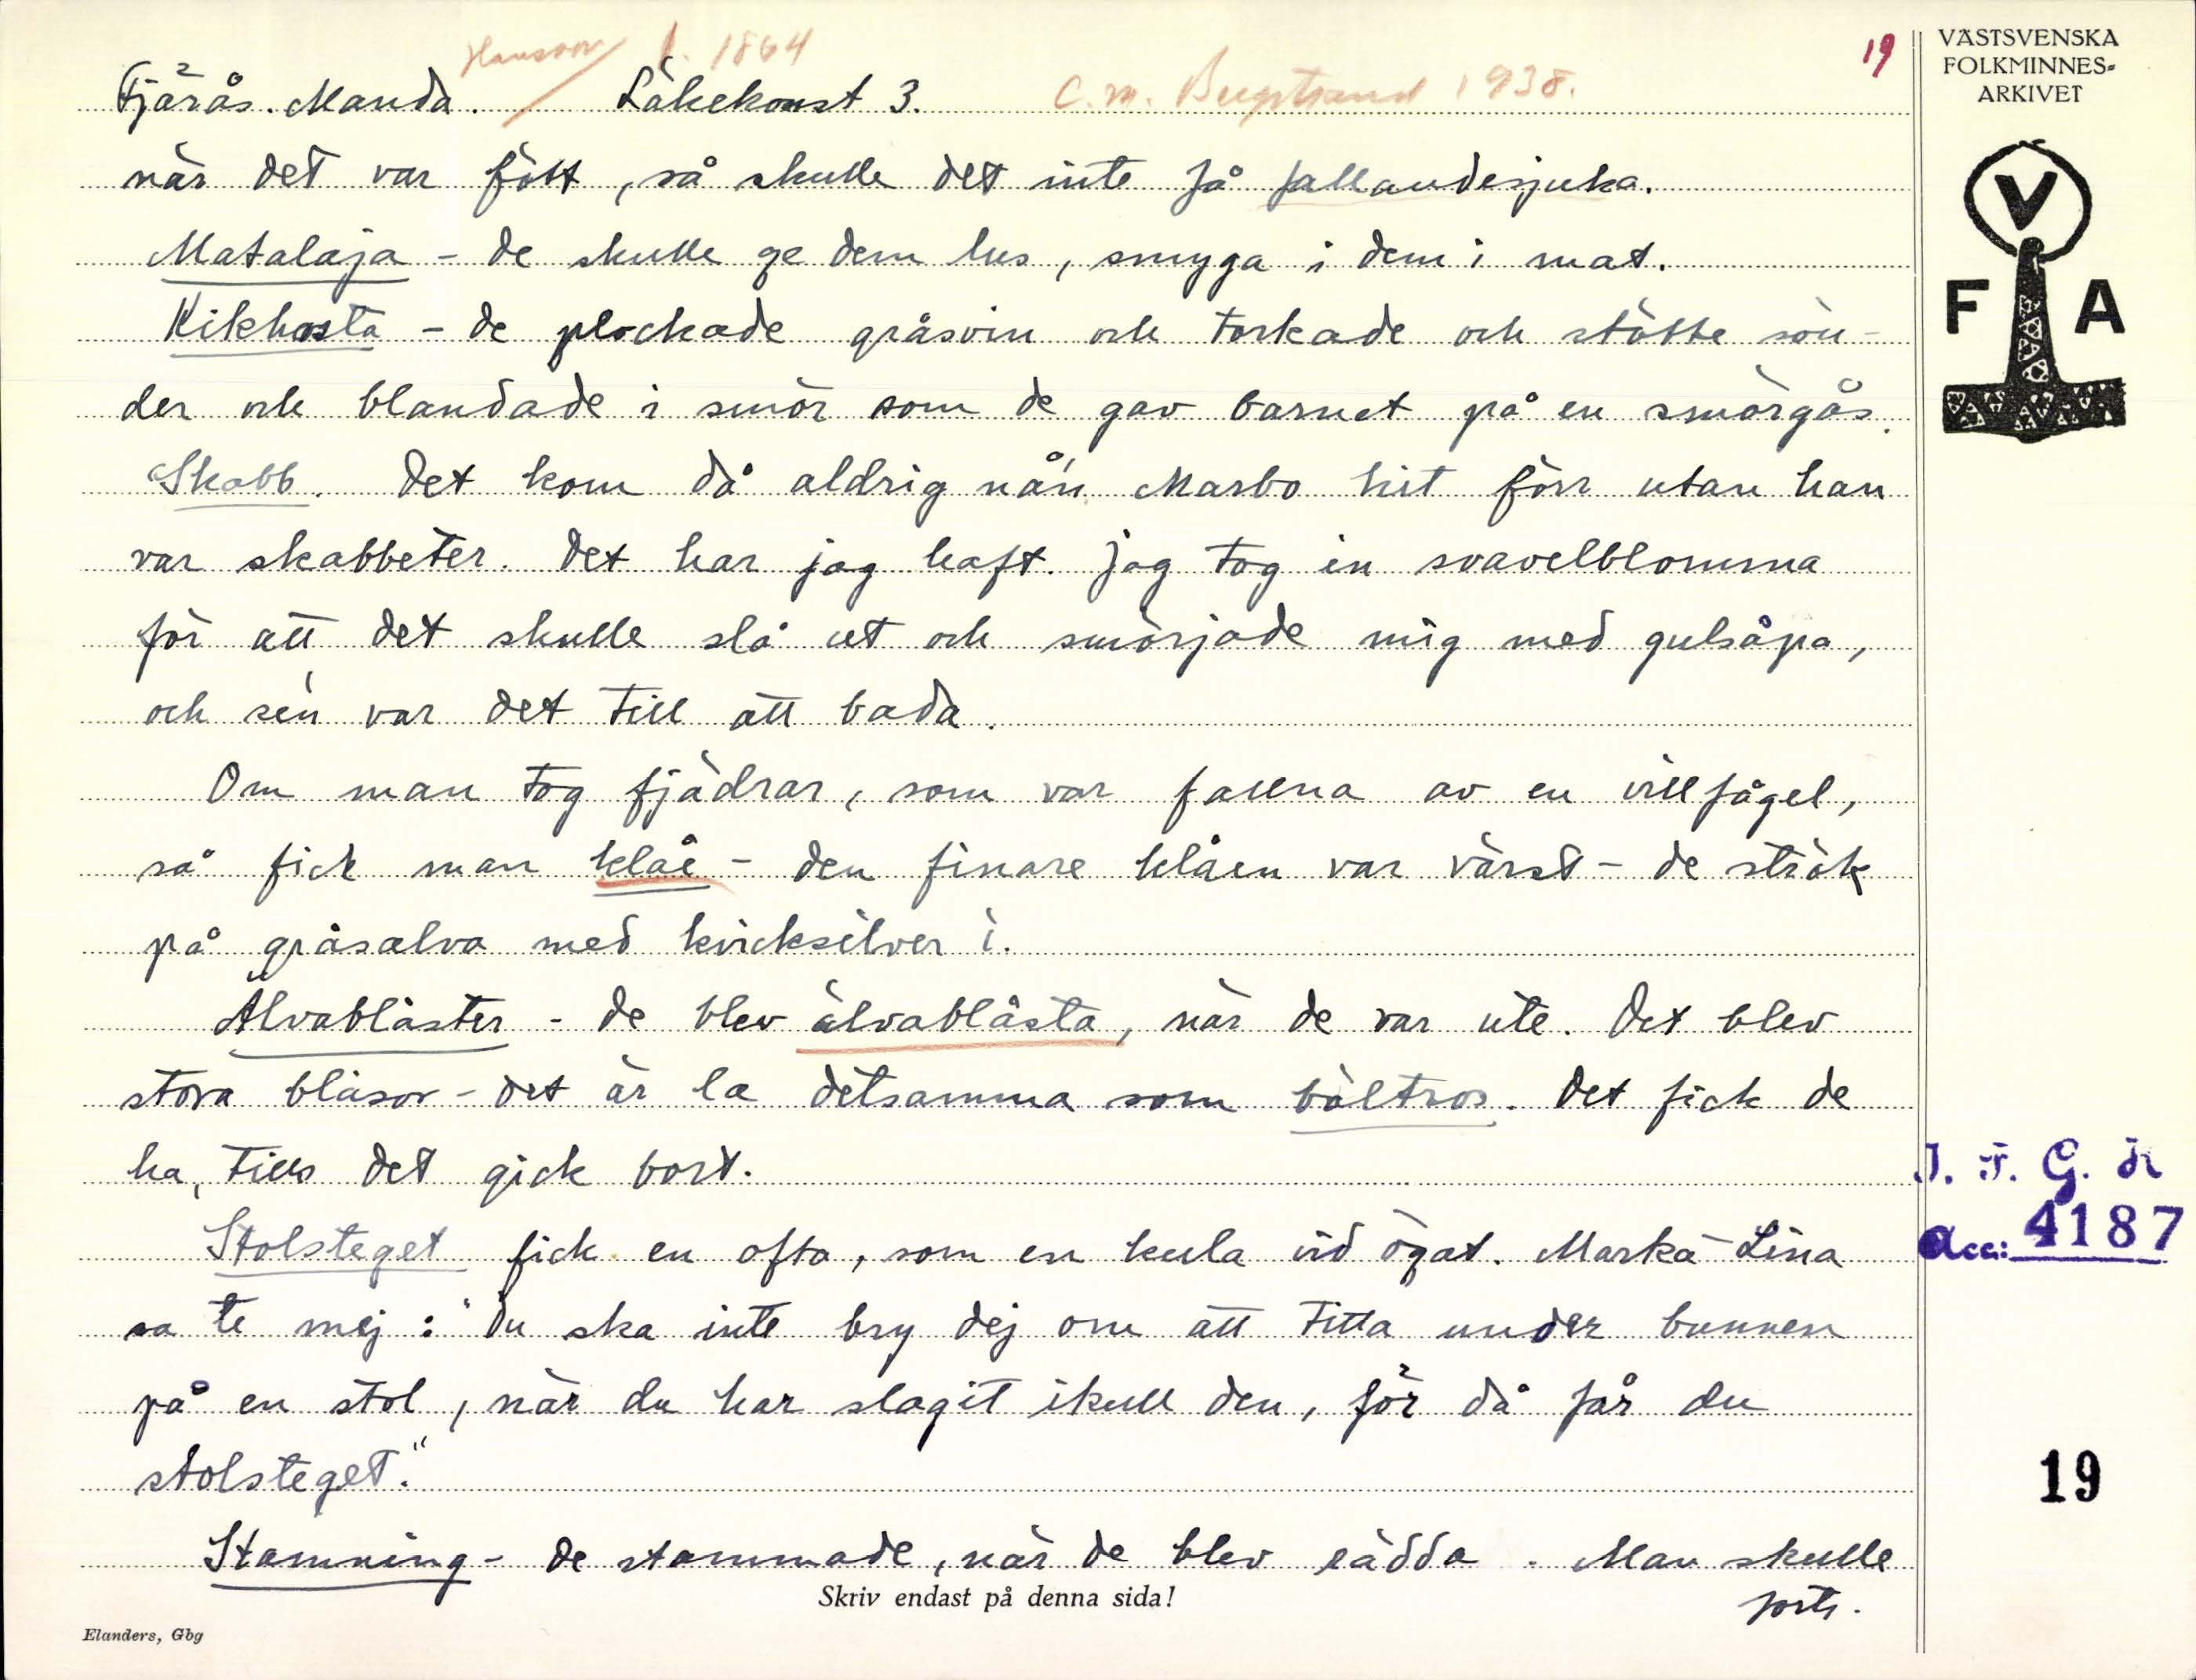 Hansson f. 1864
19
Fjärås. Manda. Läkekonst 3. C.M. Bergstrand 1938.
när det var fött, så skulle det inte få fallandesjuka.
Mataläja - de skulle ge dem lus, smyga i dem i mat.
Kikhosta - de plockade gråsvin och torkade och stötte sön-
der och blandade i smör som de gav barnet på en smörgås.
Skabb. Det kom då aldrig nå'n Marbo hit förr utan han
var skabbeter. Det har jag haft. Jag tog in svavelblomma
för att det skulle slå ut och smörjade mig med gulsåpa,
och sen var det till att bada.
Om man tog fjädrar, som var fallna av en villfågel,
så fick man klåe - den finare klåen var värst - de strök
på gråsalva med kvicksilver i.
Älvablåster - de blev älvablåsta, när de var ute. Det blev
stora blåsor - det är la detsamma som bältros. Det fick de
ha, tills det gick bort.
Stolsteget fick en ofta, som en kula vid ögat. Marka-Lina
sa te mej: "Du ska inte bry dej om att titta under bunnen
på en stol, när du har slagit ikull den, för då får du
stolsteget."
Stamning - de stammade, när de blev rädda. Man skulle
forts.
Skriv endast på denna sida!
Elanders, Gbg
VÄSTSVENSKA
FOLKMINNES-
ARKIVET
V
F A
I. F. G. H
Acc: 4187
19